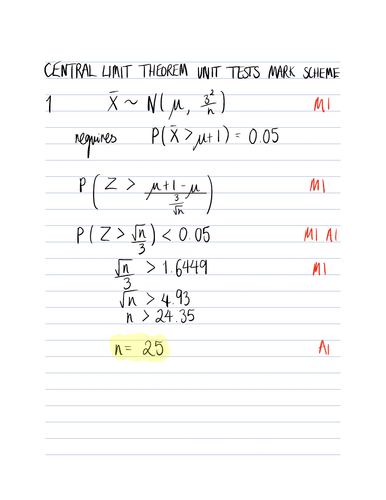 CENTRAL LIMIT THEOREM UNIT TESTS MARK SCHEME
1 X̄ ~ N(μ, 3²/n) M1
requires P(X̄ > μ+1) = 0.05
P(Z > (μ+1-μ)/(3/√n)) M1
P(Z > √n/3) < 0.05 M1 A1
√n/3 > 1.6449 M1
√n > 4.93
n > 24.35
n = 25 A1